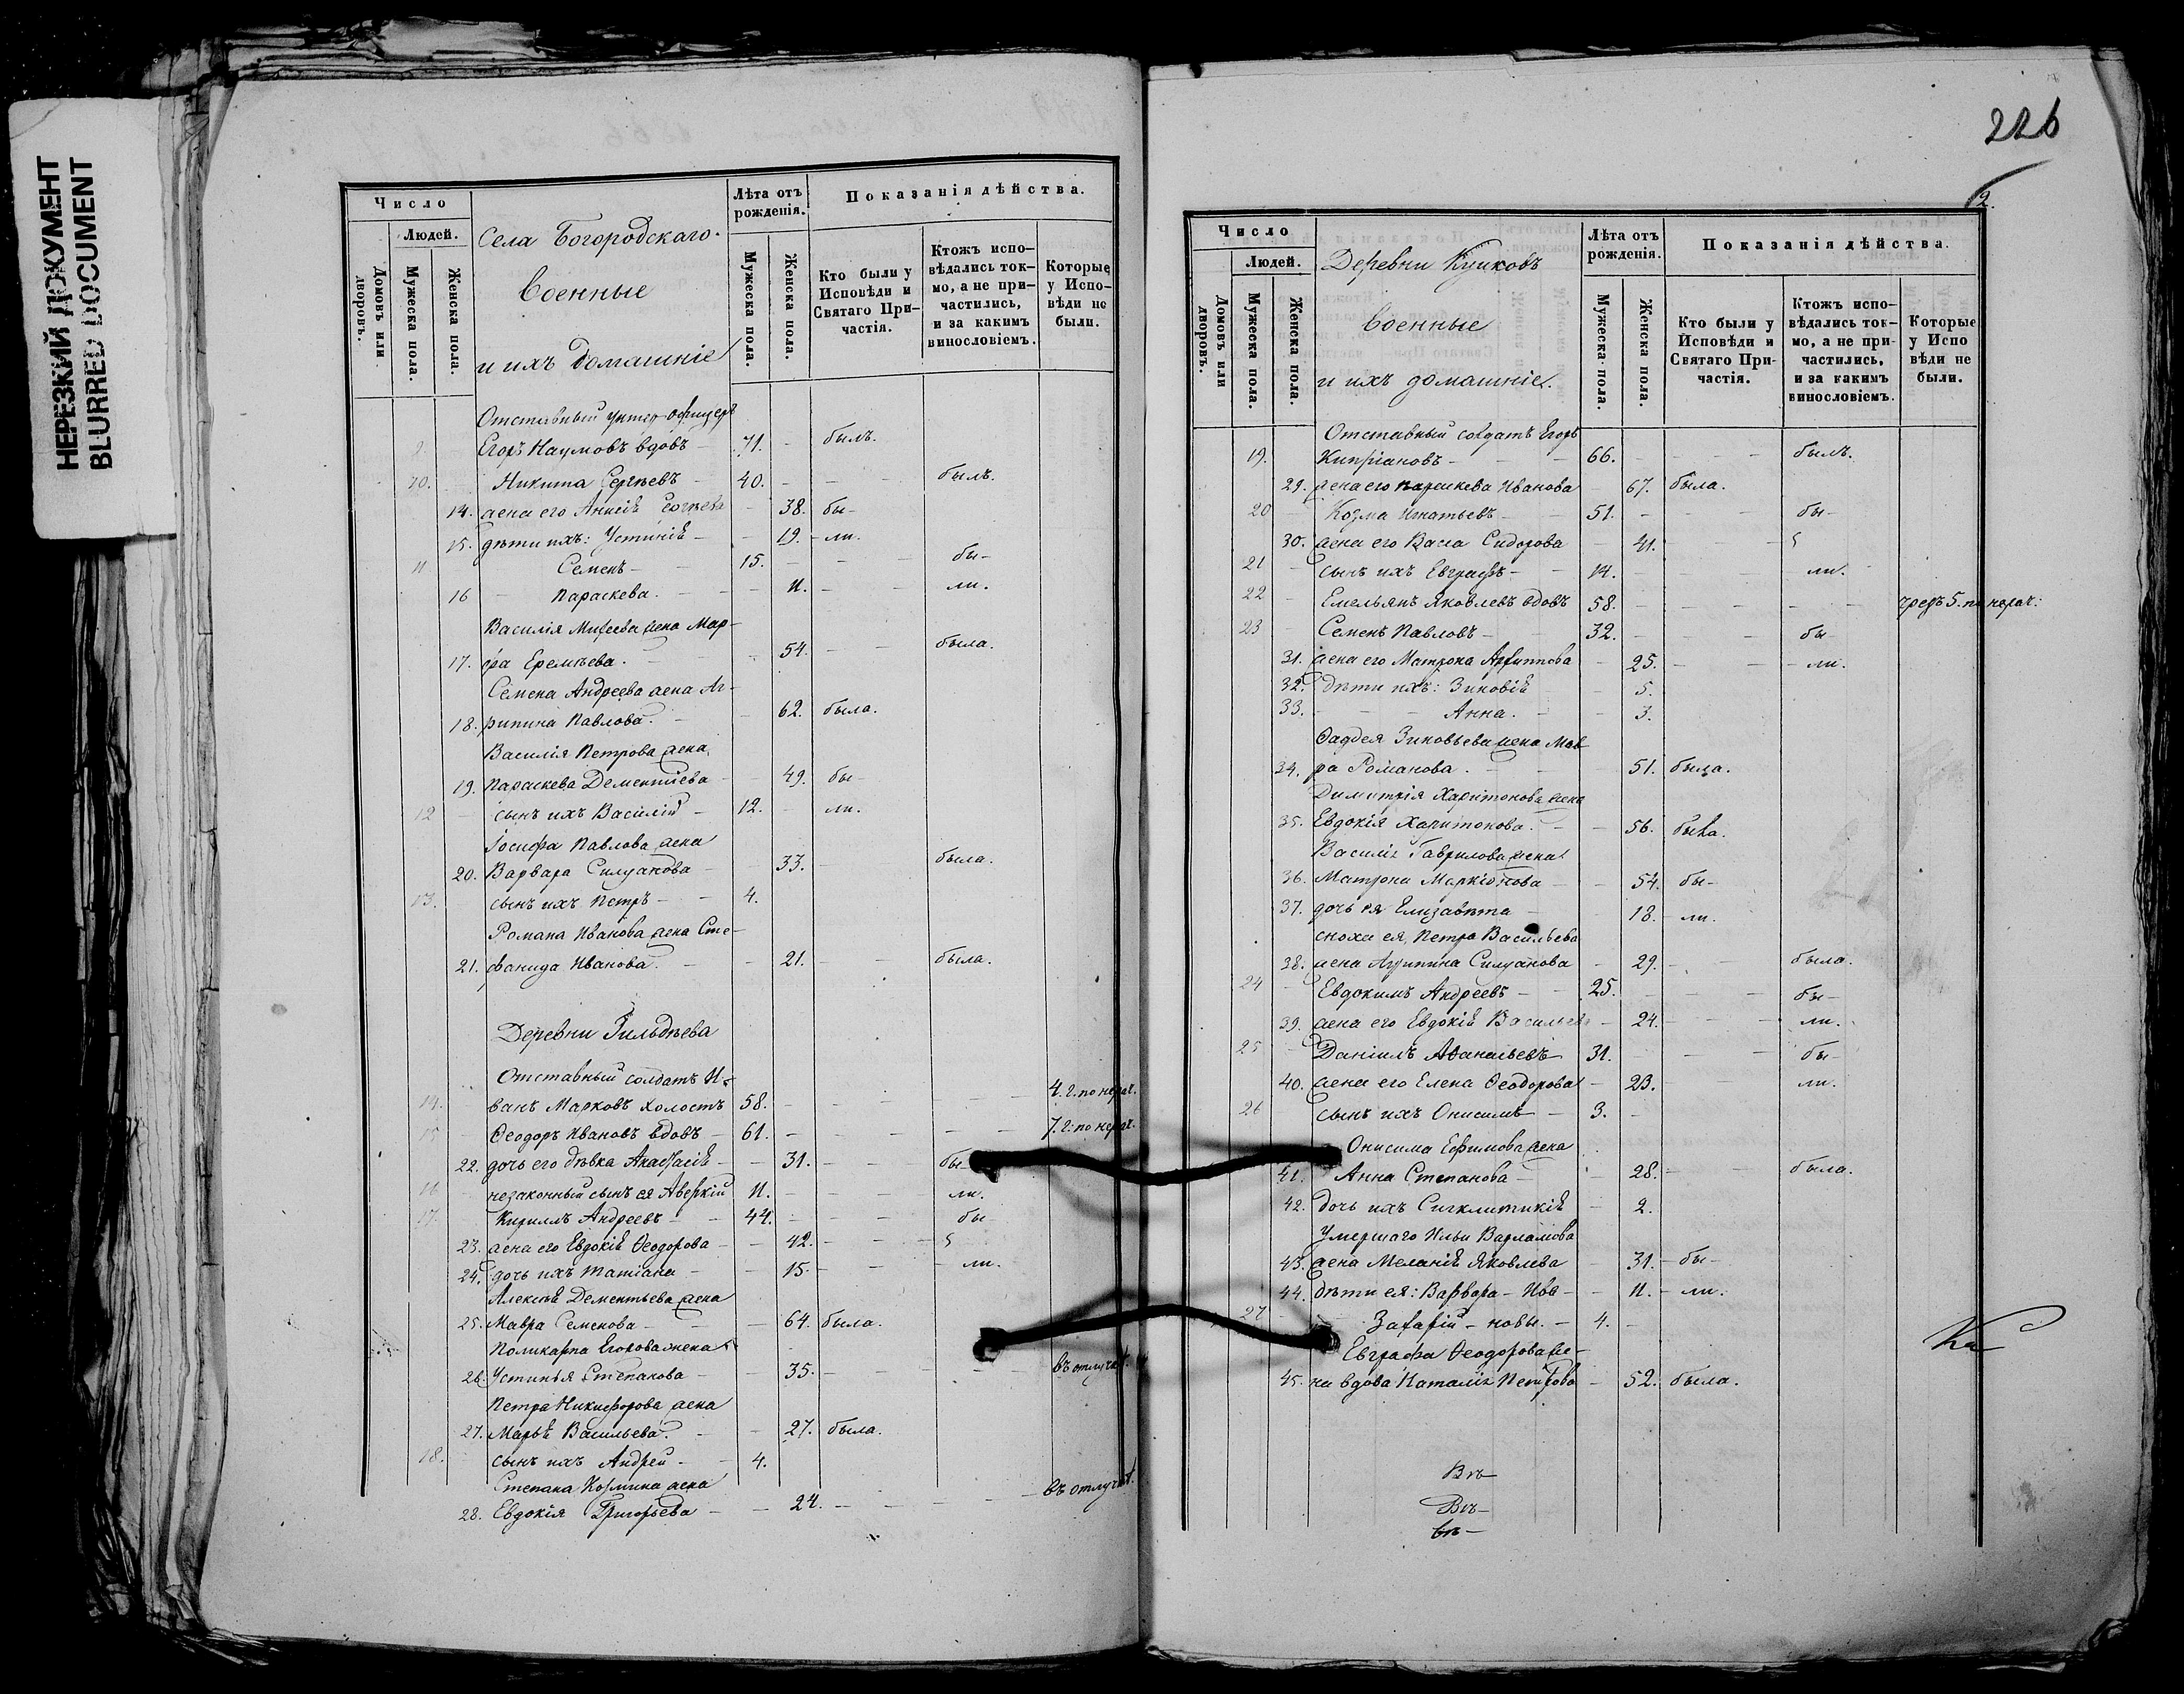 НЕРЕЗКИЙ ДОКУМЕНТ
BLURRED DOCUMENT
Число
Людей.
Домовъ или дворовъ.
Мужеска пола.
Женска пола.
Села Богородскаго.
военные
и ихъ домашніе
Лѣта отъ рожденія.
Мужеска пола.
Женска пола.
Показанія дѣйства.
Кто были у Исповѣди и Святаго Причастія.
Ктожъ исповѣдались токмо, а не причастились, и за какимъ винословіемъ.
Которые у Исповѣди не были.
Отставный унтер-офицеръ
Егоръ Наумовъ вдовъ 71. - былъ.
10. Никита Сергѣевъ - 40. - - былъ.
14. жена его Анисія - 38. бы-
15. дѣти ихъ: Устинія - - 19. - ли.
11 Семенъ - 15. - - бы-
16 - Параскева. - - 11. - ли.
Василія жена Мар-
17. фа Еремѣева. - 54. - - была.
Семена Андреева жена Аг-
18. рипина Павлова. - 62. была.
Василія Петрова жена
19. Параскева Дементіева - 49. бы-
12 - сынъ ихъ Василій - 12. - ли.
Іосифа Павлова жена
20. Варвара Силуанова - 33. - была.
13. - сынъ ихъ Петръ - - 4.
Романа Иванова жена Сте-
21. фанида Иванова. - - 21. - - была.
Деревни Зильдѣева
Отставный солдатъ И-
14. ванъ Марковъ холостъ 58. - - - - 4. г. по нерач.
15 - Ѳеодоръ Ивановъ вдовъ - 61. - - - - 7. г. по нерач.
22. дочь его дѣвка - - 31. - - бы
16 - незаконный сынъ ея Аверкій 11. - - - ли.
17. Кириллъ Андреевъ - - 44. - - - бы-
23. жена его Евдокія Ѳеодорова - - 42. - -
24. дочь ихъ Татіана - - 15. - - - ли.
Алексѣя Дементьева жена
25. Мавра Семенова - - - 64. была.
Поликарпа Егорова жена
26. Устинья Степанова - - 35. - - - - въ отлучкѣ.
Петра Никифорова жена
27. Марья Васильева. - - 27. была.
18. - сынъ ихъ Андрей - - 4.
Степана Козмина жена
28. Евдокія Григорьева - - 24. - - - - въ отлучкѣ.
226
Число
Людей.
Домовъ или дворовъ.
Мужеска пола.
Женска пола.
Деревни
военные
и ихъ домашніе.
Лѣта отъ рожденія.
Мужеска пола.
Женска пола.
Показанія дѣйства.
Кто были у Исповѣди и Святаго Причастія.
Ктожъ исповѣдались токмо, а не причастились, и за какимъ винословіемъ.
Которые у Испо вѣди не были.
Отставный солдатъ Егоръ
19. Кипріановъ - - - 66. - - - былъ.
29. жена его Параскева Иванова - 67. была.
20 Козма Игнатьевъ - - 51. - - - бы-
30. жена его Васса Сидорова - 41. - -
21 - сынъ ихъ Евграфъ - - 14. - - - ли.
22 - Емельянъ Яковлевъ вдовъ 58. - - - - 5. по нерач:
23 - Семенъ Павловъ - 32. - - бы
31. жена его Матрона - 25. - - - ли.
32. дѣти ихъ: Зиновія - 5.
33. - - - Анна. - - 3.
Фаддея Зиновьева жена Мав
34. ра Романова. - - 51. была.
Димитрія Харитонова жена
35. Евдокія Харитонова. - - 56. была.
Василія Гаврилова жена
36. Матрона - - 54. бы-
37. дочь ея Елизавета - - 18. - ли.
сноха ея, Петра Васильева
38. жена Агрипина Силуанова - 29. - - была.
24 - Евдокимъ Андреевъ - - 25. - - - бы-
39. жена его Евдокія Васильева - 24. - - ли.
25 - Даніилъ - 31. - - - бы-
40. жена его Елена Ѳеодорова - 23. - - ли.
26 сынъ ихъ Онисимъ - 3. -
Онисима Ефимова жена
41. Анна Степанова - - 28. - - была.
42. дочь ихъ Сигклитикія - 2.
Умершаго Ильи Варламова
43. жена Меланія Яковлева - 31. - бы-
44. дѣти ея: Варвара - Ива- - 11. - ли.
27 Захарій - новы. - 4. -
Евграфа Ѳеодорова же-
45. на вдова Наталія Петрова - 52. была.
Въ-
Въ-
въ-